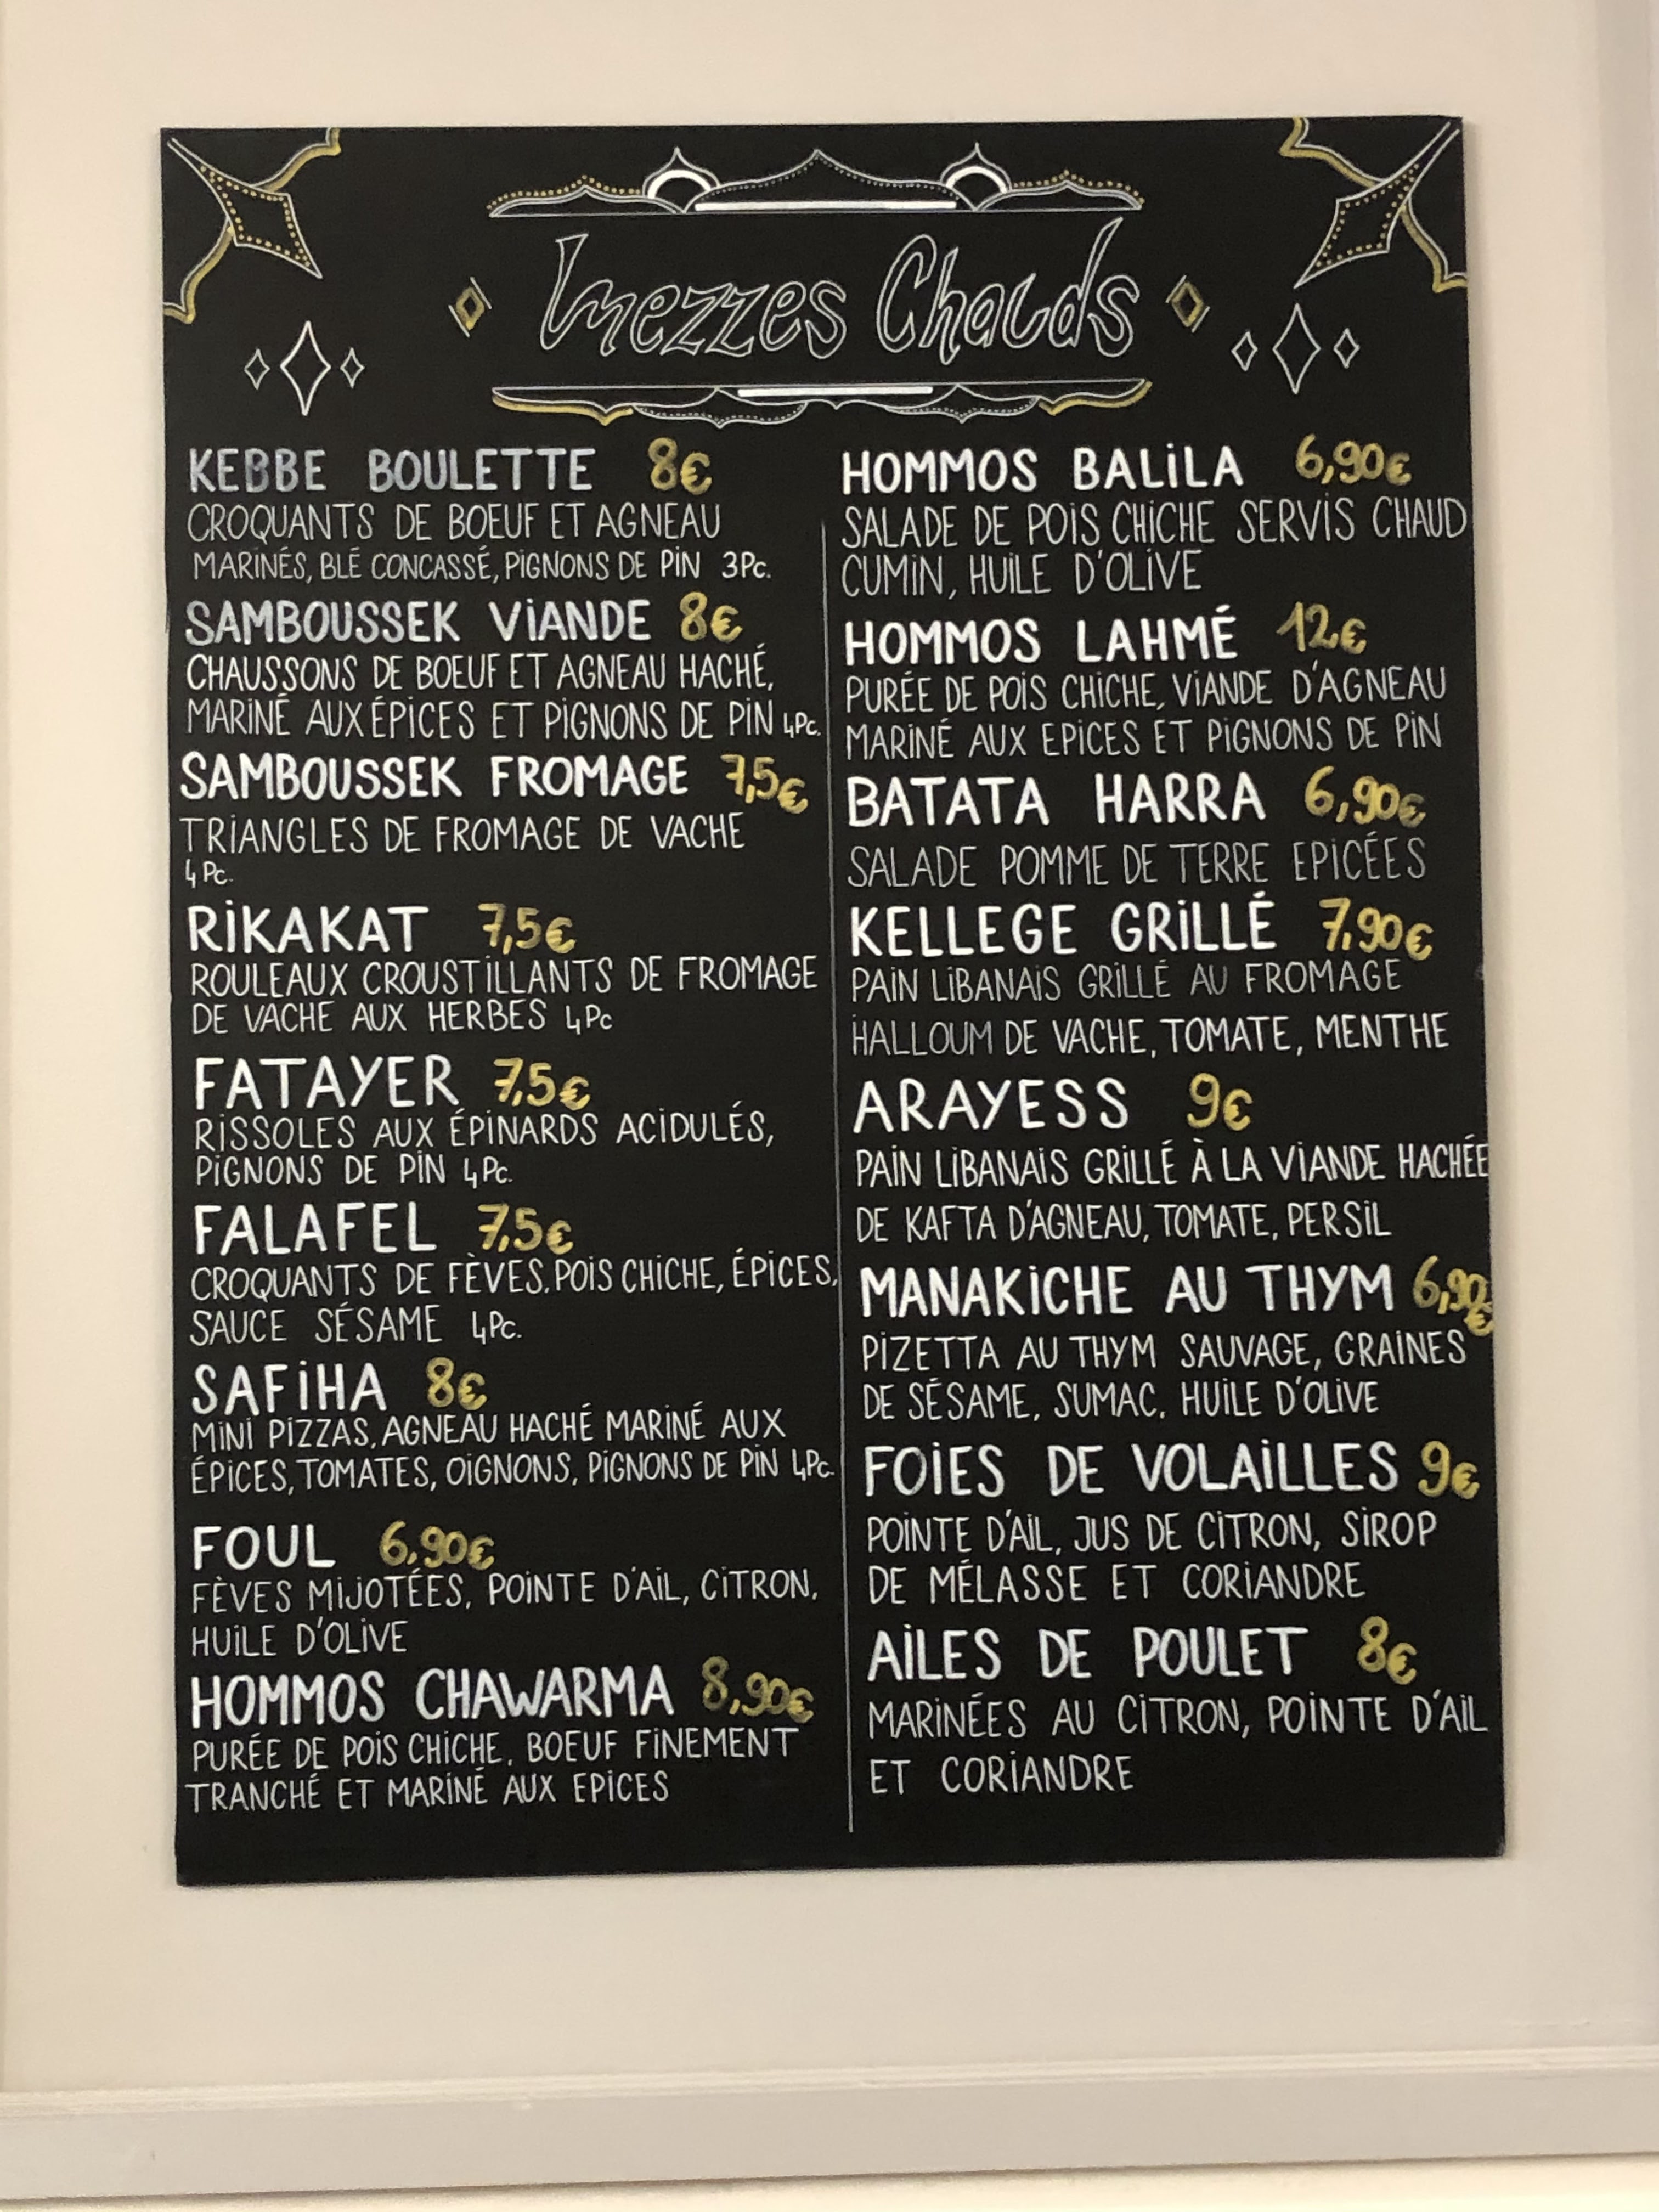 Mezzes Chauds
KEBBE BOULETTE 8€
CROQUANTS DE BOEUF ET AGNEAU
MARINÉS, BLÉ CONCASSÉ, PIGNONS DE PIN 3Pc.
SAMBOUSSEK VIANDE 8€
CHAUSSONS DE BOEUF ET AGNEAU HACHÉ,
MARINÉ AUX ÉPICES ET PIGNONS DE PIN 4Pc.
SAMBOUSSEK FROMAGE 7,5€
TRIANGLES DE FROMAGE DE VACHE
4 Pc.
RIKAKAT 7,5€
ROULEAUX CROUSTILLANTS DE FROMAGE
DE VACHE AUX HERBES 4Pc
FATAYER 7,5€
RISSOLES AUX ÉPINARDS ACIDULÉS,
PIGNONS DE PIN 4Pc.
FALAFEL 7,5€
CROQUANTS DE FÈVES, POIS CHICHE, ÉPICES,
SAUCE SÉSAME 4Pc.
SAFIHA 8€
MINI PIZZAS, AGNEAU HACHÉ MARINÉ AUX
ÉPICES, TOMATES, OIGNONS, PIGNONS DE PIN 4Pc.
FOUL 6,90€
FÈVES MIJOTÉES, POINTE D'AIL, CITRON,
HUILE D'OLIVE
HOMMOS CHAWARMA 8,90€
PURÉE DE POIS CHICHE, BOEUF FINEMENT
TRANCHÉ ET MARINÉ AUX EPICES
HOMMOS BALILA 6,90€
SALADE DE POIS CHICHE SERVIS CHAUD
CUMIN, HUILE D'OLIVE
HOMMOS LAHMÉ 12€
PURÉE DE POIS CHICHE, VIANDE D'AGNEAU
MARINÉ AUX EPICES ET PIGNONS DE PIN
BATATA HARRA 6,90€
SALADE POMME DE TERRE EPICÉES
KELLEGE GRILLÉ 7,90€
PAIN LIBANAIS GRILLÉ AU FROMAGE
HALLOUM DE VACHE, TOMATE, MENTHE
ARAYESS 9€
PAIN LIBANAIS GRILLÉ À LA VIANDE HACHÉE
DE KAFTA D'AGNEAU, TOMATE, PERSIL
MANAKICHE AU THYM 6,90€
PIZETTA AU THYM SAUVAGE, GRAINES
DE SÉSAME, SUMAC, HUILE D'OLIVE
FOIES DE VOLAILLES 9€
POINTE D'AIL, JUS DE CITRON, SIROP
DE MÉLASSE ET CORIANDRE
AILES DE POULET 8€
MARINÉES AU CITRON, POINTE D'AIL
ET CORIANDRE